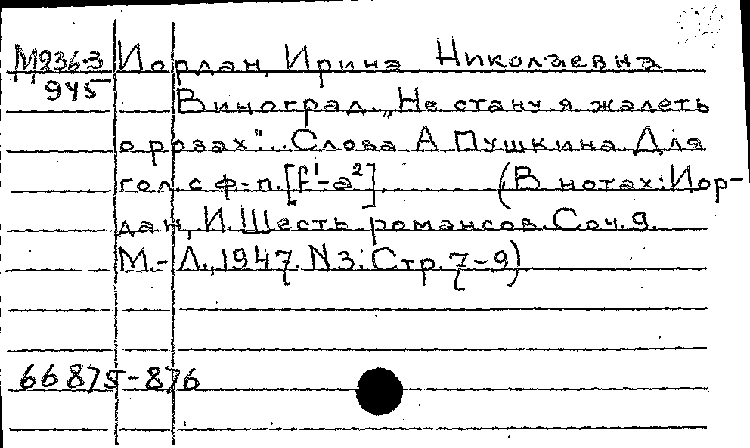 М236-3 Иордан, Ирина Николаевна
945 Виноград. „Не стану я жалеть
о розах"... Слова А Пушкина. Для
гол. с ф-п. [f¹-a²]. (В нотах: Иор-
дан, И. Шесть романсов. Соч. 9.
М.-Л., 1947. N3: Стр. 7-9)
66875-876